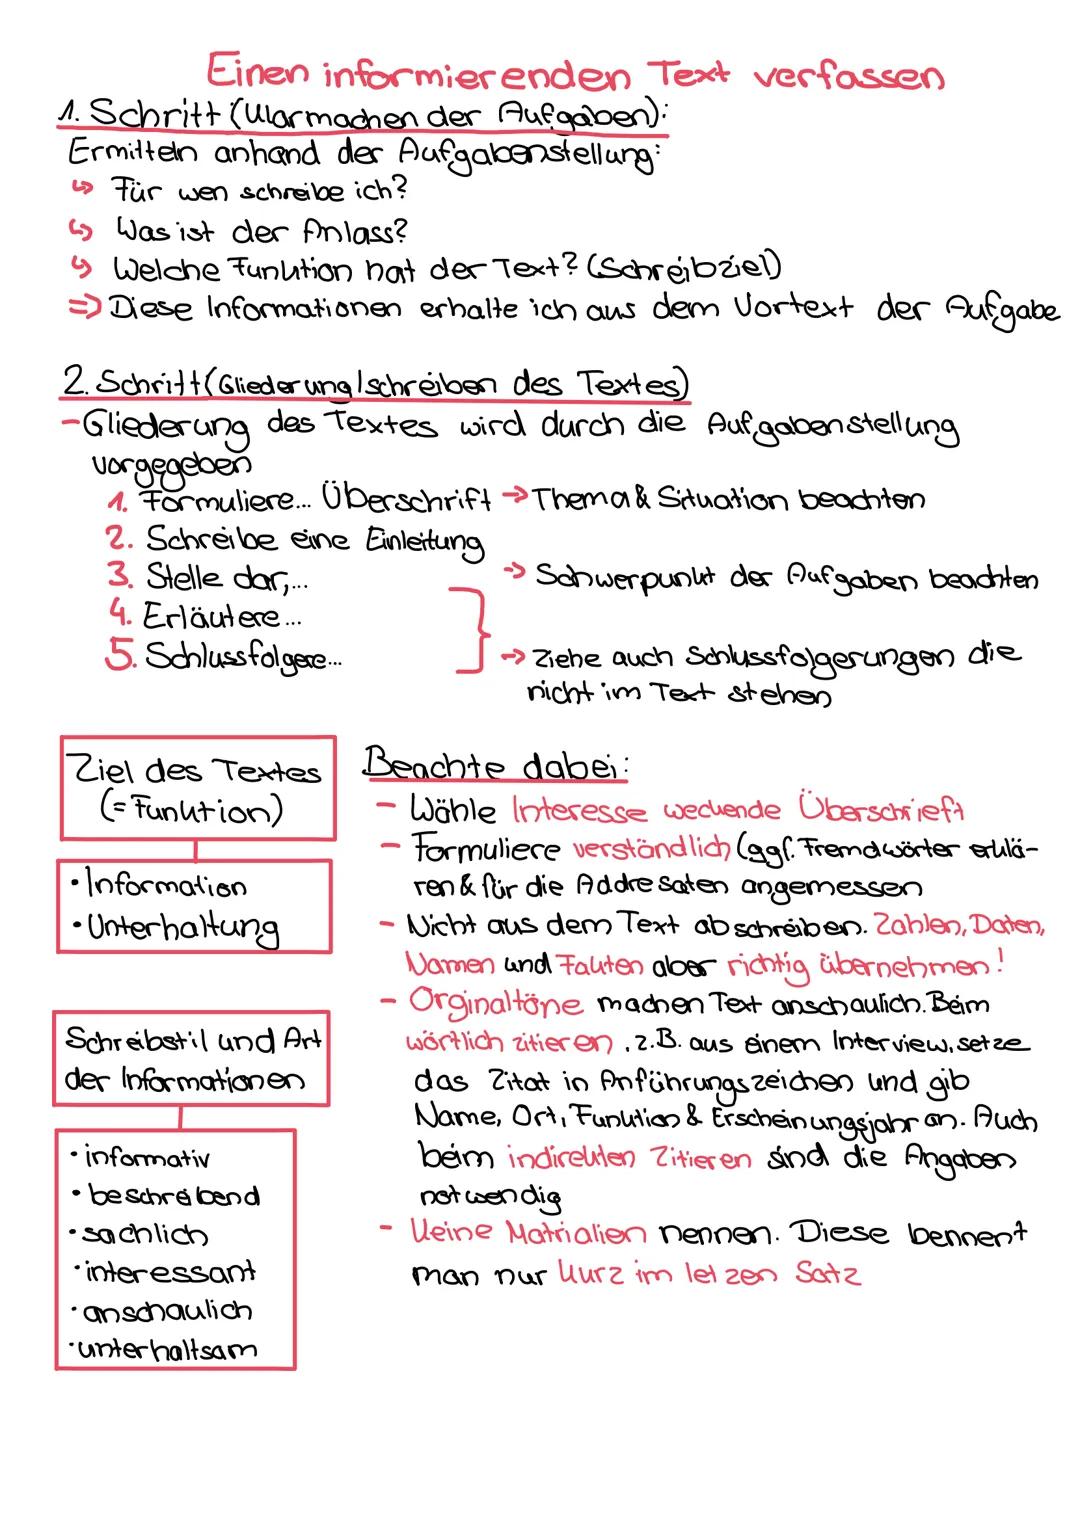 Einen informierenden Text verfassen
1. Schritt (Klarmachen der Aufgaben):
Ermitteln anhand der Aufgabenstellung:
↳ Für wen schreibe ich?
↳ Was ist der Anlass?
↳ Welche Funktion hat der Text? (Schreibziel)
=> Diese Informationen erhalte ich aus dem Vortext der Aufgabe
2. Schritt (Gliederung/schreiben des Textes)
- Gliederung des Textes wird durch die Aufgabenstellung
vorgegeben
1. Formuliere... Überschrift → Thema & Situation beachten
2. Schreibe eine Einleitung
3. Stelle dar,...
→ Schwerpunkt der Aufgaben beachten
4. Erläutere...
5. Schlussfolgere...
→ Ziehe auch Schlussfolgerungen die
nicht im Text stehen
Ziel des Textes
(= Funktion)
• Information
• Unterhaltung
Schreibstil und Art
der Informationen
• informativ
• beschreibend
• sachlich
• interessant
• anschaulich
• unterhaltsam
Beachte dabei:
- Wähle Interesse weckende Überschrieft
- Formuliere verständlich (ggf. Fremdwörter erklä-
ren & für die Addresaten angemessen
- Nicht aus dem Text abschreiben. Zahlen, Daten,
Namen und Fakten aber richtig übernehmen!
- Orginaltöne machen Text anschaulich. Beim
wörtlich zitieren, z.B. aus einem Interview, setze
das Zitat in Anführungszeichen und gib
Name, Ort, Funktion & Erscheinungsjahr an. Auch
beim indirekten Zitieren sind die Angaben
notwendig
- Keine Matrialien nennen. Diese bennent
man nur kurz im letzen Satz